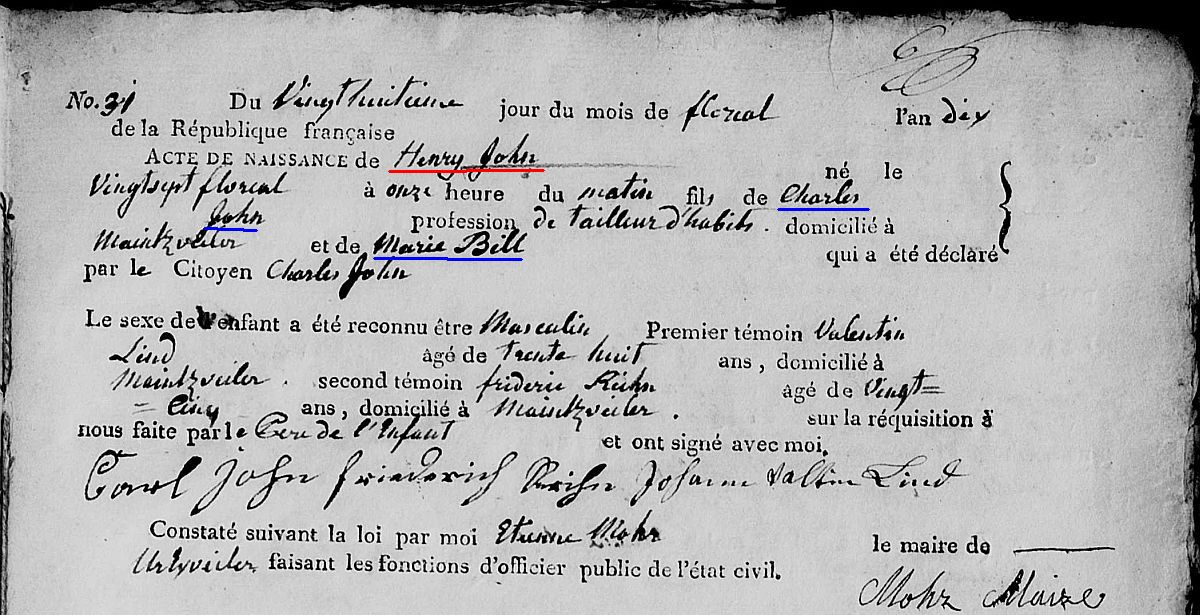 No. 31 Du Vingt huitieme jour du mois de floreal l'an dix
de la République française
ACTE DE NAISSANCE de Henry John né le
Vingtsept floreal à onze heure du matin fils de Charles
John profession de tailleur d'habits. domicilié à
Maintzveiler et de Marie Bill qui a été déclaré
par le Citoyen Charles John
Le sexe de l'enfant a été reconnu être Masculin Premier témoin Valentin
Lind âgé de trente huit ans, domicilié à
Maintzveiler. second témoin frideric Kühn âgé de Vingt=
=Cinq ans, domicilié à Maintzveiler. sur la réquisition à
nous faite par le Pere de l'Enfant et ont signé avec moi.
Carl John friederich Johann Lind
Constaté suivant la loi par moi Etienne Mohr le maire de
Urexveiler faisant les fonctions d'officier public de l'état civil.
Mohr Maire